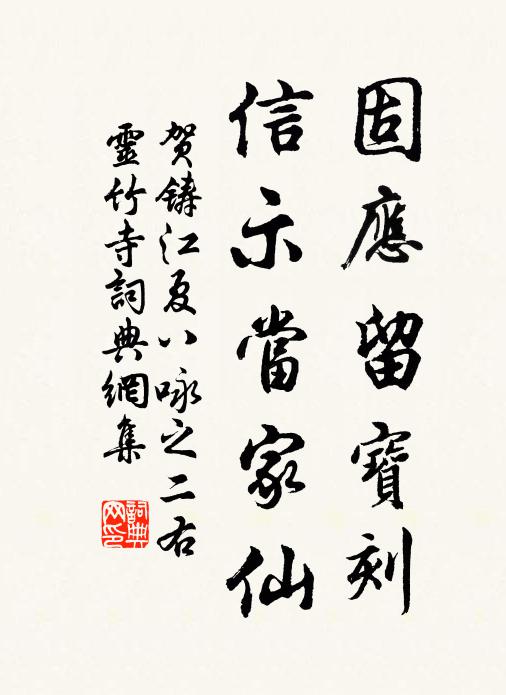 固應留寶刻
信示當家仙
賀鑄江夏八咏之二右
靈竹寺詞典網集
詞典网印